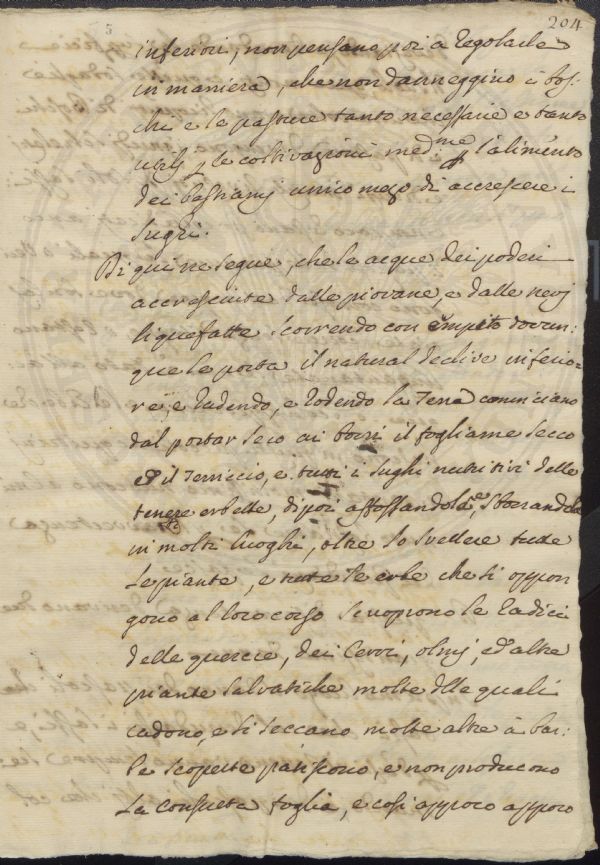 204
inferiori, non pensano poi a regolarle
in maniera, che non danneggino i bos:
chi e le pasture tanto necessarie e tanto
utili p le coltivazioni med.me p l'alimento
dei bestiami unico mezo di accrescere i
sughi.
Di qui ne segue, che le acque dei poderi
accresciute dalle piovane, e dalle nevi
liquefatte scorrendo con empito dovun:
que le porta il natural declive inferio:
re, e radendo, e rodendo la Terra cominciano
dal portar seco ai borri il fogliame secco
ed il Terriccio, e tutti i sughi nutritivi delle
tenere erbette, di poi affossandola, e sborrandola
in molti luoghi, oltre lo svellere tutte
le piante, e tutte le erbe che si oppon
gono al loro corso scuoprono le radici
delle quercie, dei Cerri, olmi, ed altre
piante salvatiche molte delle quali
cadono, e si seccano molte altre à bar:
be scoperte patiscono, e non producono
la consueta foglia, e cosi appoco appoco